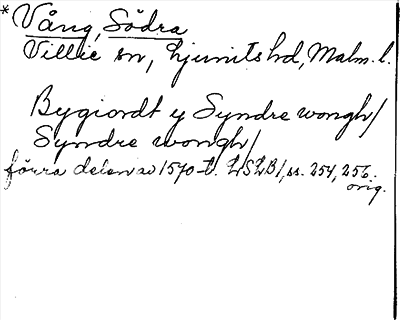 * Vång, Södra
Villie sn, Ljunits hd, Malm. l.
Bygiordt y Syndre wongh/
Syndre wongh/
förra delen av 1570-t. LSLB 1, ss. 254, 256.
orig.